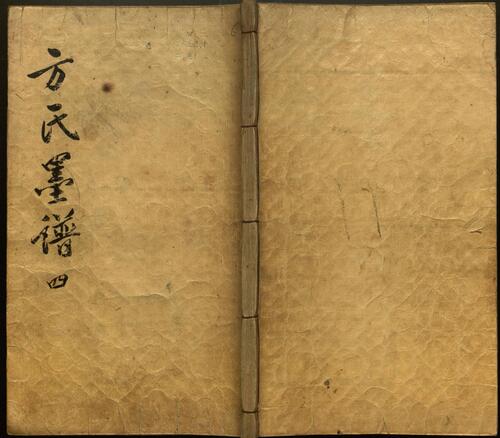 方氏墨譜四